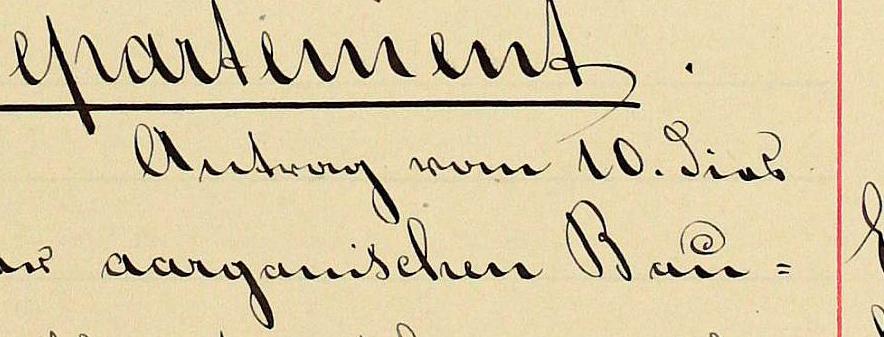 epartement.
Antrag vom 10. dies
der aargauischen Bau=